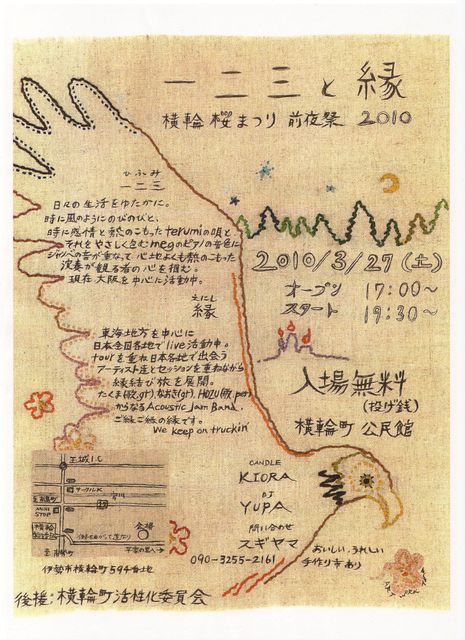 一二三と縁
横輪 桜まつり 前夜祭 2010
ひふみ
一二三
日々の生活をゆたかに。
時に風のようにのびのびと、
時に感情と熱のこもったterumiの唄と
それをやさしく包むmegのピアノの音色に
ジャンベの音が重なって心地よくも熱のこもった
演奏が観る者の心を掴む。
現在大阪を中心に活動中。
2010/3/27(土)
オープン 17:00〜
スタート 19:30〜
えにし
縁
東海地方を中心に
日本全国各地でlive活動中。
tourを重ね日本各地で出会う
アーティスト達とセッションを重ねながら
縁結び旅を展開。
からなるAcoustic Jam Band。
ご縁ご絵の縁です。
We keep on truckin'
入場無料
(投げ銭)
横輪町 公民館
CANDLE
KIORA
DJ
YUPA
問い合わせ
スギヤマ
090-3255-2161
おいしい、うれしい
手作り市あり
玉城I.C
サークルK
MINI
STOP
会場
伊勢市横輪町594番地
後援;横輪町活性化委員会